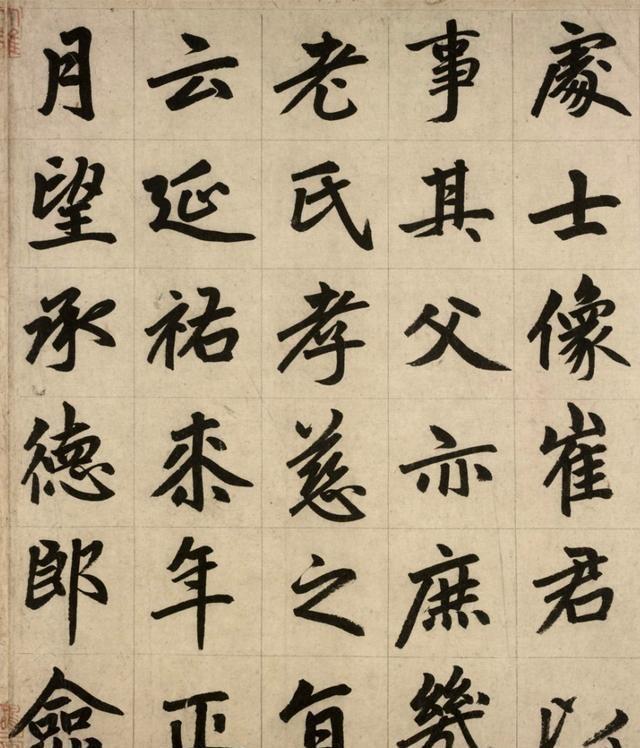 處士像崔君以
事其父亦庶幾
老氏孝慈之
云延祐桼年正
月望承德郎僉